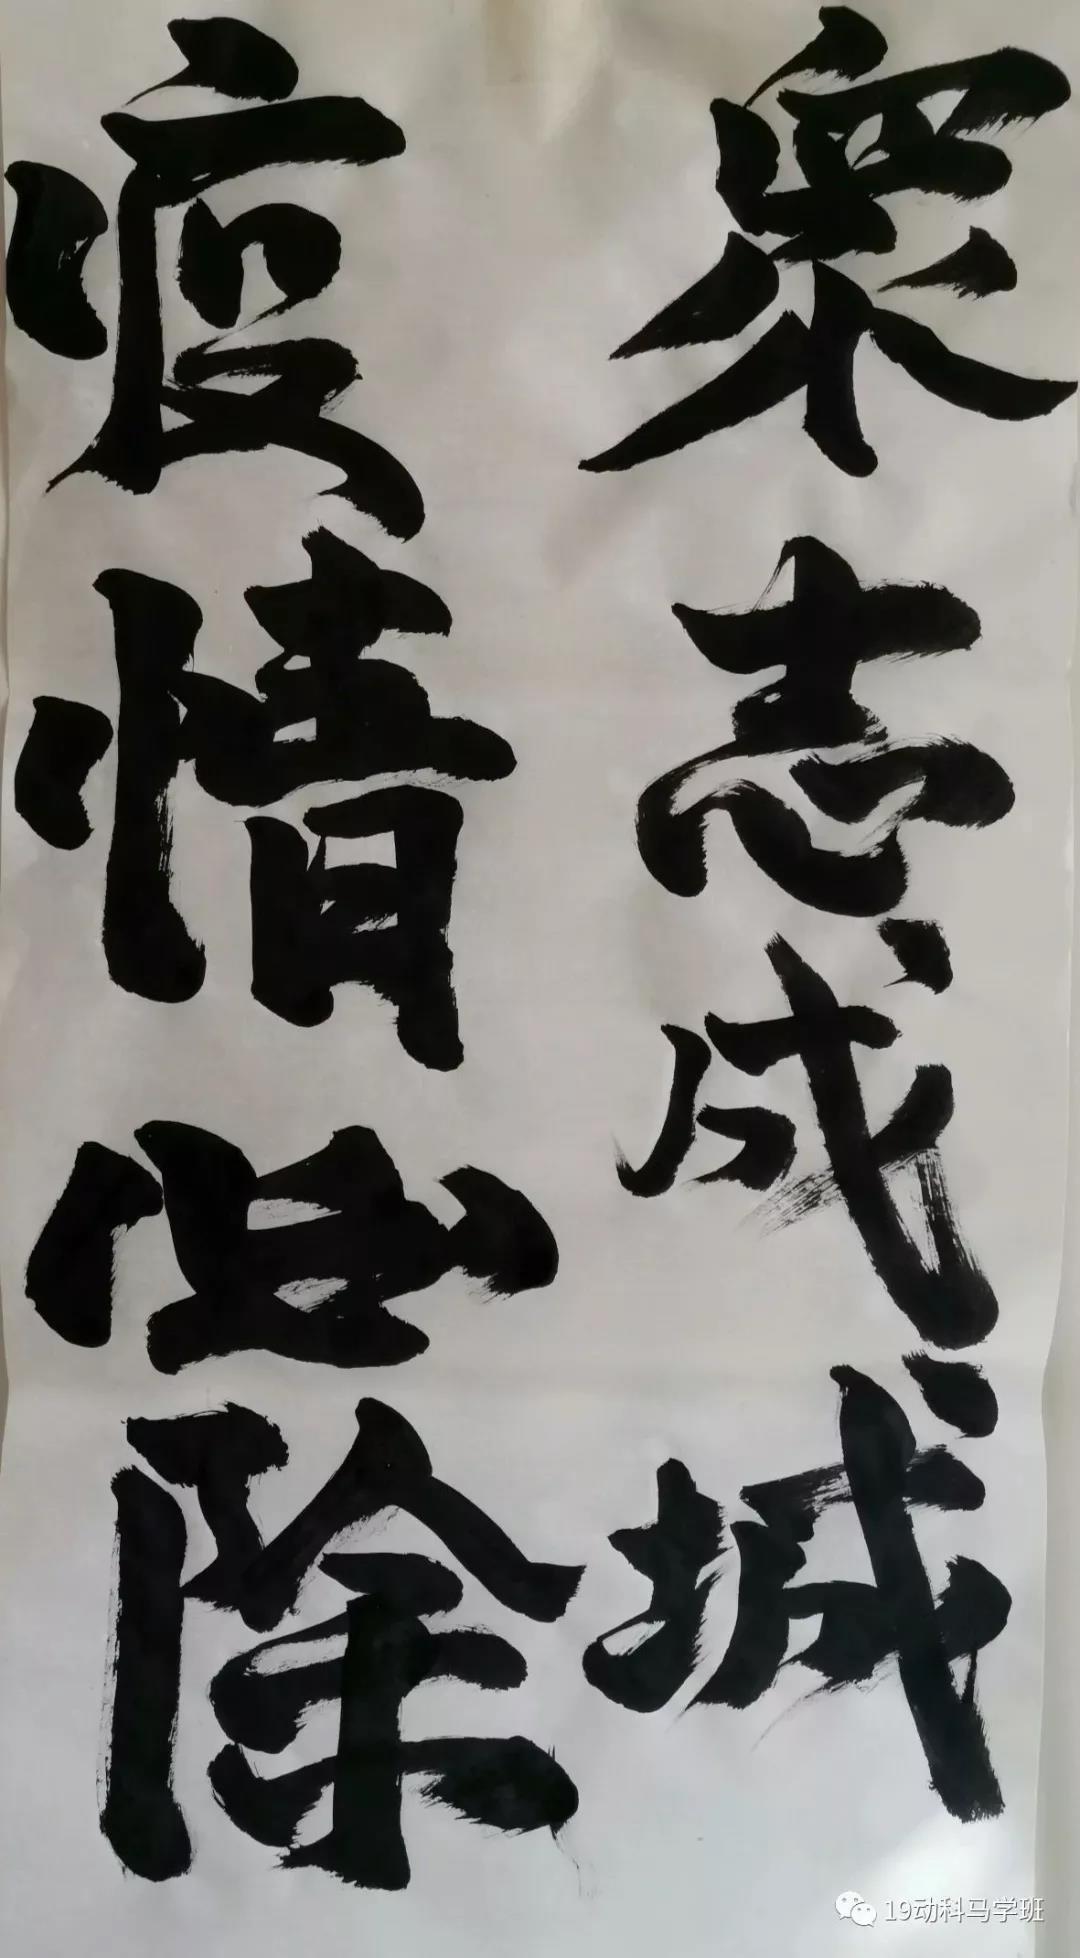 眾志成城
疫情必除
19动科马学班